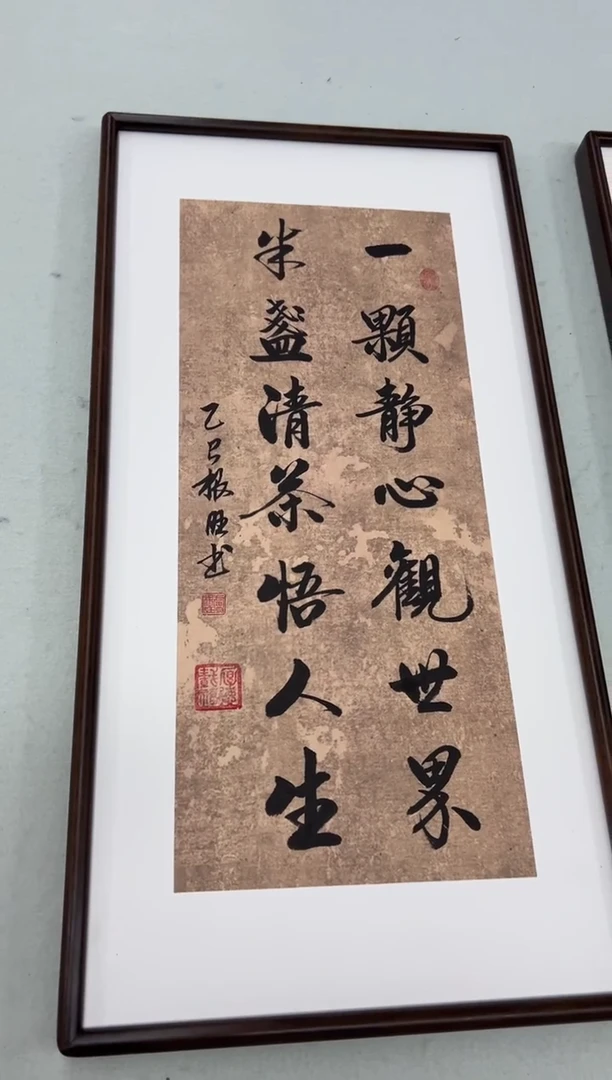 一顆静心觀世界
半盞清茶悟人生
乙巳根旺书